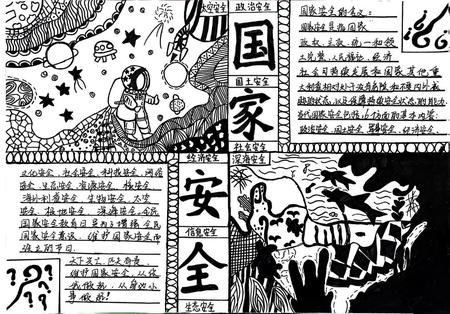 太空安全
政治安全
国
国土安全
家
社会安全
经济安全
深海安全
安
信息安全
全
生态安全
国家安全的含义:
国家安全是指国家
政权、主权、统一和领
土完整、人民福祉、经济
社会可持续发展和国家其他重
大利益相对处于没有危险和不受内外威
胁的状态,以及保障持续安全状态的能力。
当代国家安全包括16方面的基本内容:
政治安全、国土安全、军事安全、经济安全、
文化安全、社会安全、科技安全、网络
安全、生态安全、资源安全、核安全、
海外利益安全、生物安全、太空
安全、极地安全、深海安全。全民
国家安全教育日是为了增强全民
国家安全意识,维护国家安全而
设立的节日。
天下兴亡,匹夫有责,
维护国家安全,从你
我做起,从身边小
事做起!
? ? ?
? ? ?